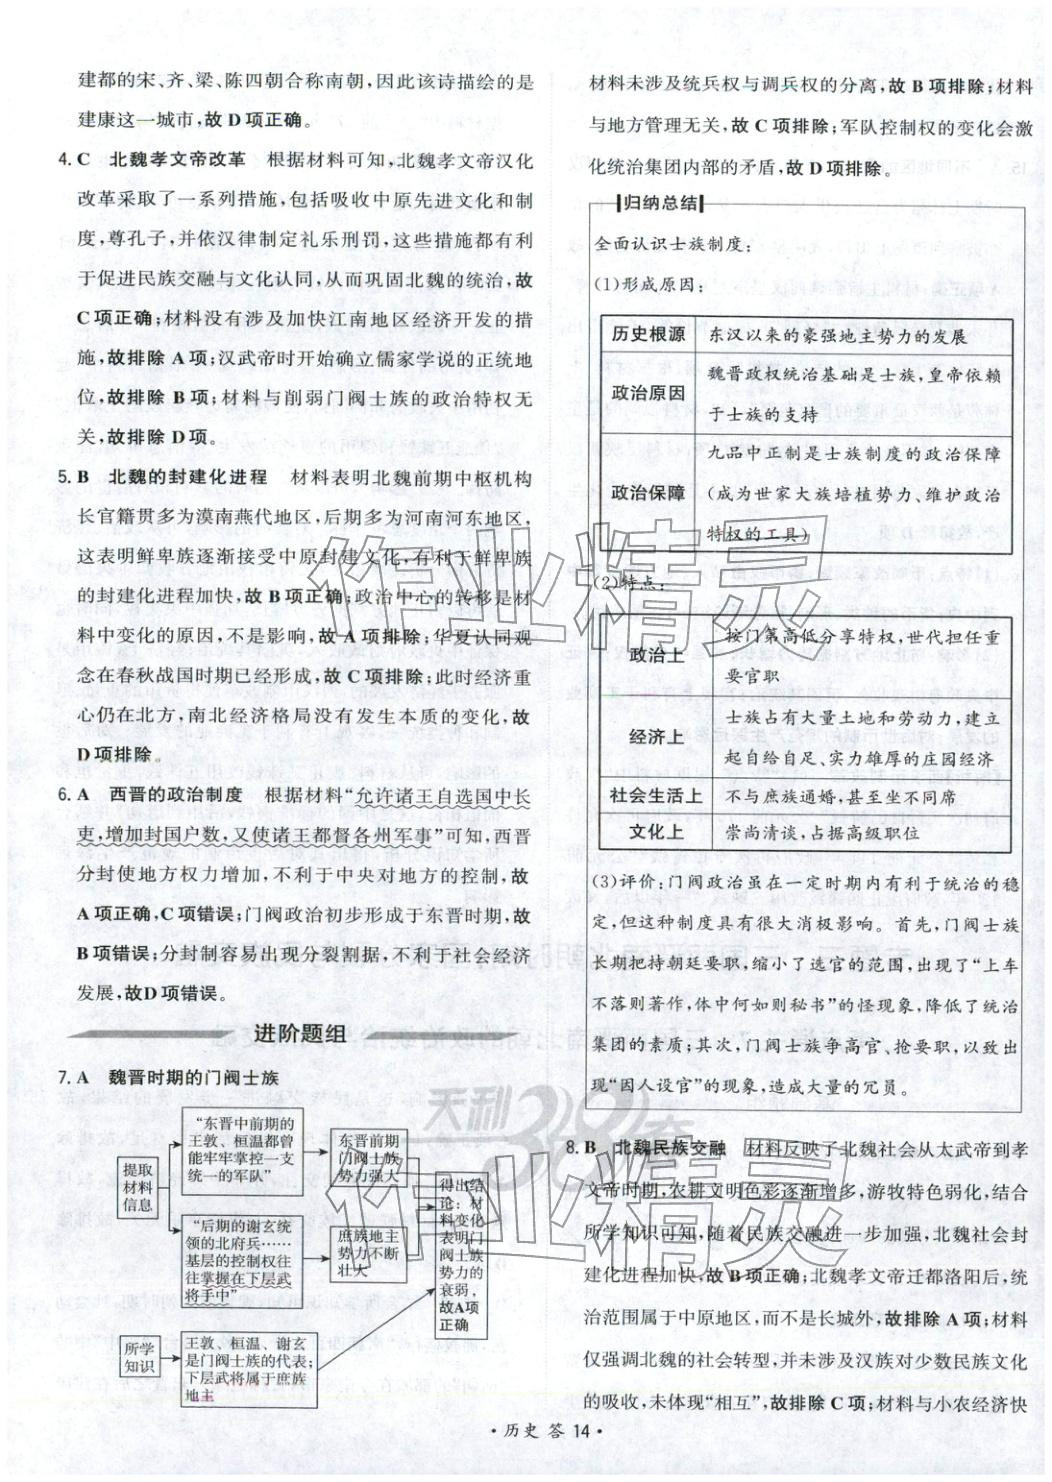 建都的宋、齐、梁、陈四朝合称南朝,因此该诗描绘的是
建康这一城市,故D项正确。
4. C 北魏孝文帝改革 根据材料可知,北魏孝文帝汉化
改革采取了一系列措施,包括吸收中原先进文化和制
度,尊孔子,并依汉律制定礼乐刑罚,这些措施都有利
于促进民族交融与文化认同,从而巩固北魏的统治,故
C项正确;材料没有涉及加快江南地区经济开发的措
施,故排除A项;汉武帝时开始确立儒家学说的正统地
位,故排除B项;材料与削弱门阀士族的政治特权无
关,故排除D项。
5. B 北魏的封建化进程 材料表明北魏前期中枢机构
长官籍贯多为漠南燕代地区,后期多为河南河东地区,
这表明鲜卑族逐渐接受中原封建文化,有利于鲜卑族
的封建化进程加快,故B项正确;政治中心的转移是材
料中变化的原因,不是影响,故A项排除;华夏认同观
念在春秋战国时期已经形成,故C项排除;此时经济重
心仍在北方,南北经济格局没有发生本质的变化,故
D项排除。
6. A 西晋的政治制度 根据材料“允许诸王自选国中长
吏,增加封国户数,又使诸王都督各州军事”可知,西晋
分封使地方权力增加,不利于中央对地方的控制,故
A项正确,C项错误;门阀政治初步形成于东晋时期,故
B项错误;分封制容易出现分裂割据,不利于社会经济
发展,故D项错误。
进阶题组
7. A 魏晋时期的门阀士族
提取
材料
信息
“东晋中前期的
王敦、桓温都曾
能牢牢掌控一支
统一的军队”
东晋前期
门阀士族
势力强大
“后期的谢玄统
领的北府兵……
基层的控制权往
往掌握在下层武
将手中”
庶族地主
势力不断
壮大
得出结
论:材
料变化
表明门
阀士族
势力的
衰弱,
故A项
正确
所学
知识
王敦、桓温、谢玄
是门阀士族的代表;
下层武将属于庶族
地主
材料未涉及统兵权与调兵权的分离,故B项排除;材料
与地方管理无关,故C项排除;军队控制权的变化会激
化统治集团内部的矛盾,故D项排除。
归纳总结
全面认识士族制度:
(1)形成原因:
历史根源 东汉以来的豪强地主势力的发展
政治原因 魏晋政权统治基础是士族,皇帝依赖
于士族的支持
政治保障 九品中正制是士族制度的政治保障
(成为世家大族培植势力、维护政治
特权的工具)
(2)特点:
政治上 按门第高低分享特权,世代担任重
要官职
经济上 士族占有大量土地和劳动力,建立
起自给自足、实力雄厚的庄园经济
社会生活上 不与庶族通婚,甚至坐不同席
文化上 崇尚清谈,占据高级职位
(3)评价:门阀政治虽在一定时期内有利于统治的稳
定,但这种制度具有很大消极影响。首先,门阀士族
长期把持朝廷要职,缩小了选官的范围,出现了“上车
不落则著作,体中何如则秘书”的怪现象,降低了统治
集团的素质;其次,门阀士族争高官、抢要职,以致出
现“因人设官”的现象,造成大量的冗员。
8. B 北魏民族交融 材料反映了北魏社会从太武帝到孝
文帝时期,农耕文明色彩逐渐增多,游牧特色弱化,结合
所学知识可知,随着民族交融进一步加强,北魏社会封
建化进程加快,故B项正确;北魏孝文帝迁都洛阳后,统
治范围属于中原地区,而不是长城外,故排除A项;材料
仅强调北魏的社会转型,并未涉及汉族对少数民族文化
的吸收,未体现“相互”,故排除C项;材料与小农经济快
·历史 答 14·
作业精灵
作业精灵
天利38套